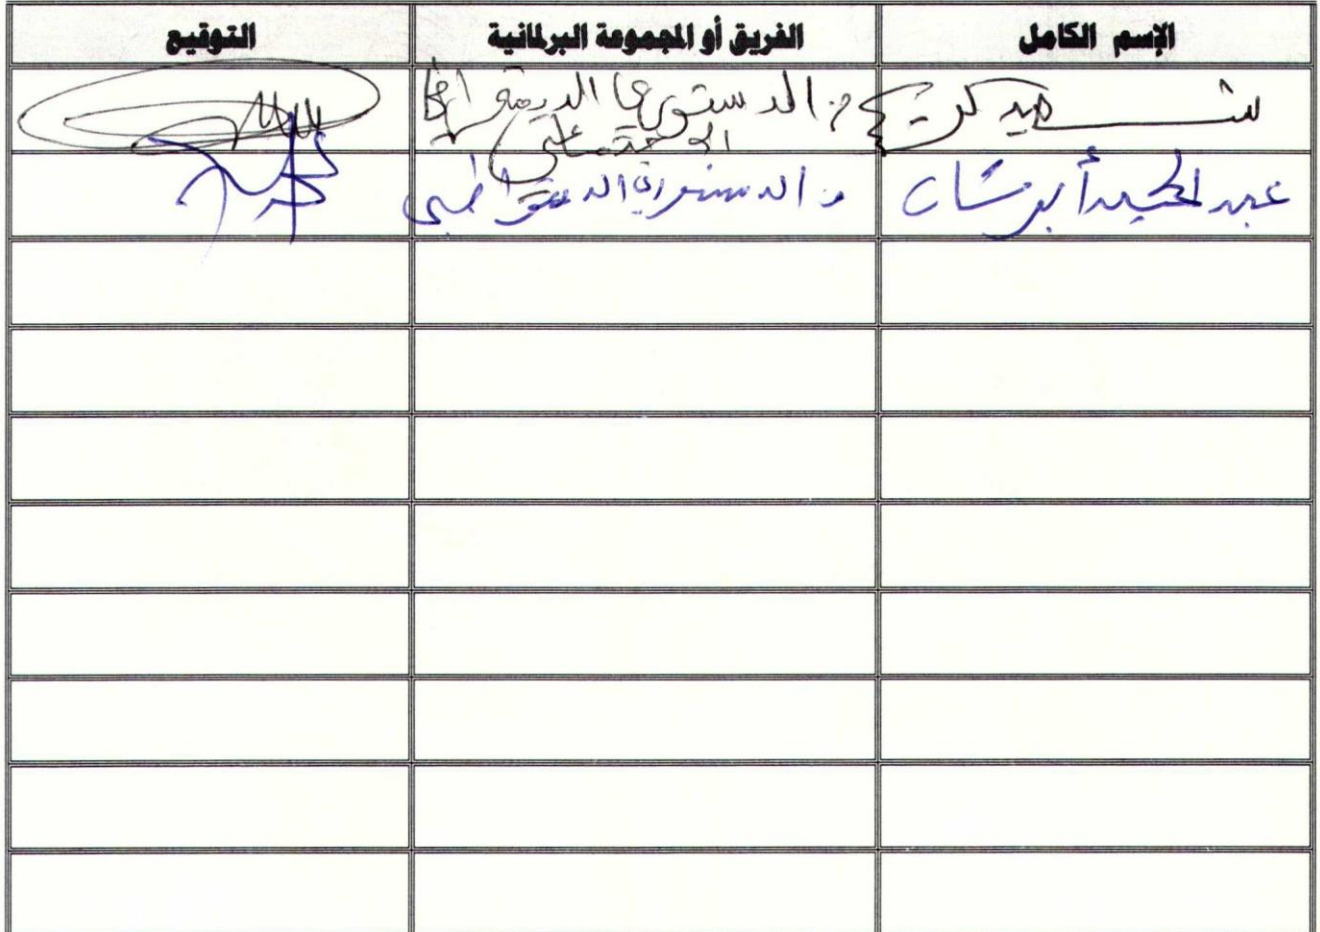 الإسم الكامل الفريق أو المجموعة البرلمانية التوقيع
ف. الدستوري الديمقراطي
الاجتماعي
عبد المجيد أبرشان ف. الدستوري الديمقراطي